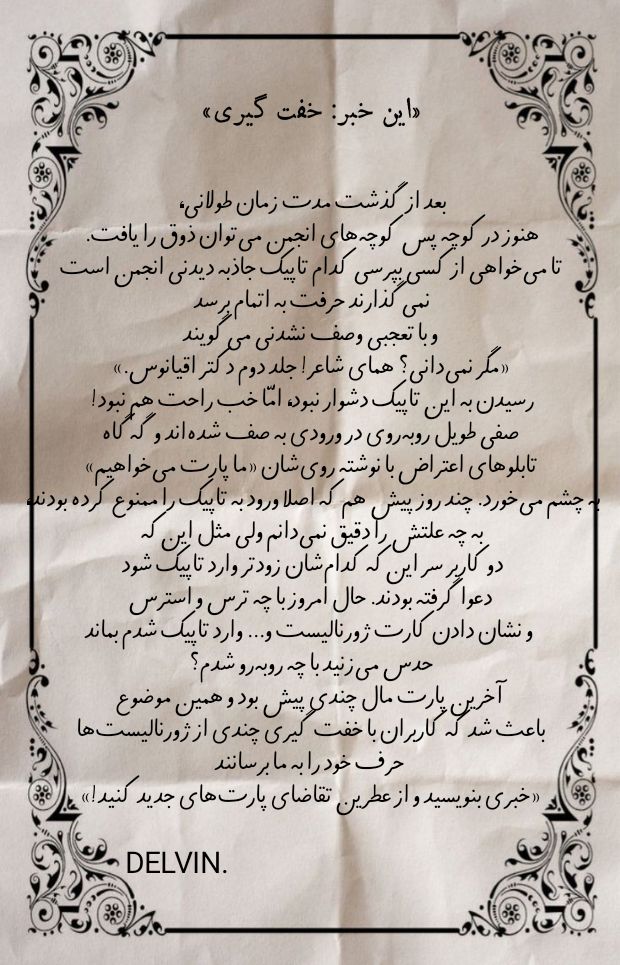 «این خبر: خفت گیری»
بعد از گذشت مدت زمان طولانی،
هنوز در کوچه پس کوچه‌های انجمن می‌توان ذوق را یافت.
تا می‌خواهی از کسی بپرسی کدام تاپیک جاذبه دیدنی انجمن است
نمی گذارند حرفت به اتمام برسد
و با تعجبی وصف نشدنی می گویند
«مگر نمی‌دانی؟ همای شاعر! جلد دوم دکتر اقیانوس.»
رسیدن به این تاپیک دشوار نبود، امّا خب راحت هم نبود!
صفی طویل روبه‌روی در ورودی به صف شده‌اند و گه گاه
تابلوهای اعتراض با نوشته روی‌شان «ما پارت می‌خواهیم»
به چشم می‌خورد. چند روز پیش هم که اصلا ورود به تاپیک را ممنوع کرده بودند،
به چه علتش را دقیق نمی‌دانم ولی مثل این که
دو کاربر سر این که کدام‌شان زودتر وارد تاپیک شود
دعوا گرفته بودند. حال امروز با چه ترس و استرس
و نشان دادن کارت ژورنالیست و... وارد تاپیک شدم بماند
حدس می‌زنید با چه روبه‌رو شدم؟
آخرین پارت مال چندی پیش بود و همین موضوع
باعث شد که کاربران با خفت گیری چندی از ژورنالیست‌ها
حرف خود را به ما برسانند
«خبری بنویسید و از عطرین تقاضای پارت‌های جدید کنید!»
DELVIN.